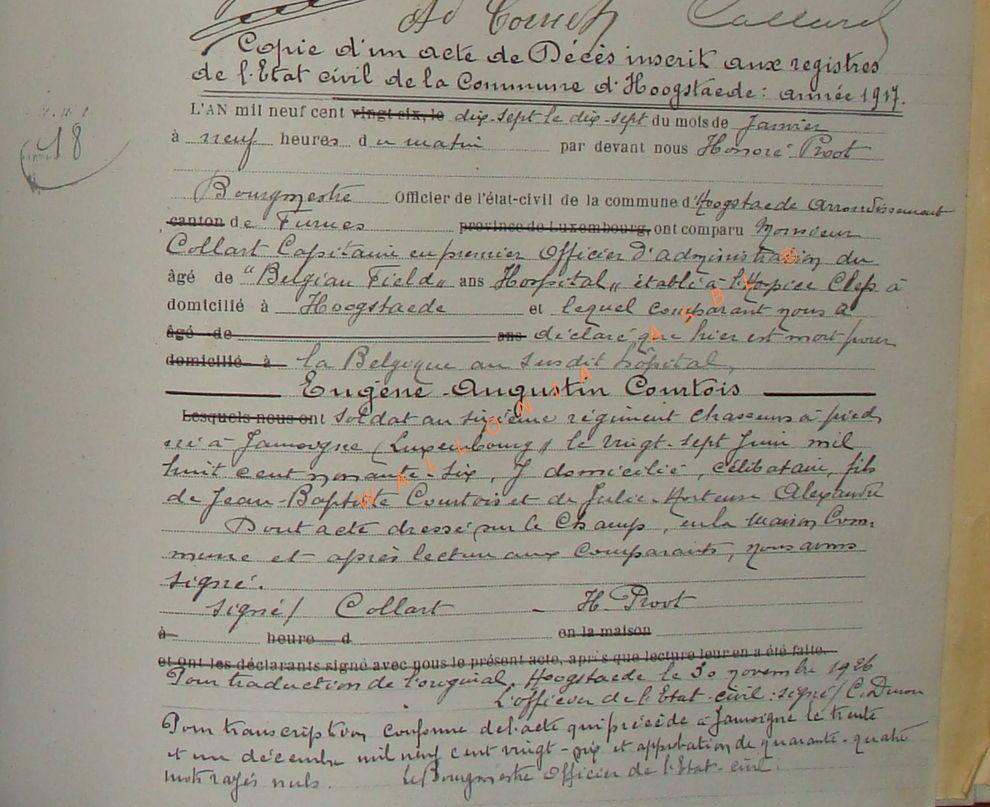 Ad Cornet Collard
Copie d'un acte de Décès inscrit aux registres
de l'Etat civil de la Commune d'Hoogstaede : année 1917.
18
L'AN mil neuf cent vingt six, le dix-sept le dix-sept du mois de Janvier
à neuf heures du matin par devant nous Honoré Proot
Bourgmestre Officier de l'état-civil de la commune d'Hoogstaede Arrondissement
canton de Furnes province de Luxembourg, ont comparu Monsieur
Collart Capitaine en premier Officier d'administration du
âgé de "Belgian Field" ans Hospital" établi à l'Hospice Clep à
domicilié à Hoogstaede et lequel comparant nous a
âgé de ans déclaré que hier est mort pour
domicilié à la Belgique au susdit hôpital,
Eugène-Augustin Courtois
Lesquels nous ont Soldat au sixième régiment chasseurs à pied,
né à Jamoigne (Luxembourg) le vingt-sept Juin mil
huit cent nonante-six, y domicilié, célibataire, fils
de Jean-Baptiste Courtois et de Julie-Hortense Alexandre
Dont acte dressé sur le champ, en la Maison Com-
mune et après lecture aux comparants, nous avons
signé.
signé/ Collart - H. Proot
à heure d en la maison
et ont les déclarants signé avec nous le présent acte, après que lecture leur en a été faite.
Pour traduction de l'original, Hoogstaede le 30 novembre 1926
L'officier de l'Etat-civil : signé/ C.
Pour transcription conforme de l'acte qui précède à Jamoigne le trente
et un décembre mil neuf cent vingt-six et approbation de quarante-quatre
mots rayés nuls. Le Bourgmestre Officier de l'Etat-civil.
WALLONIA ASBL